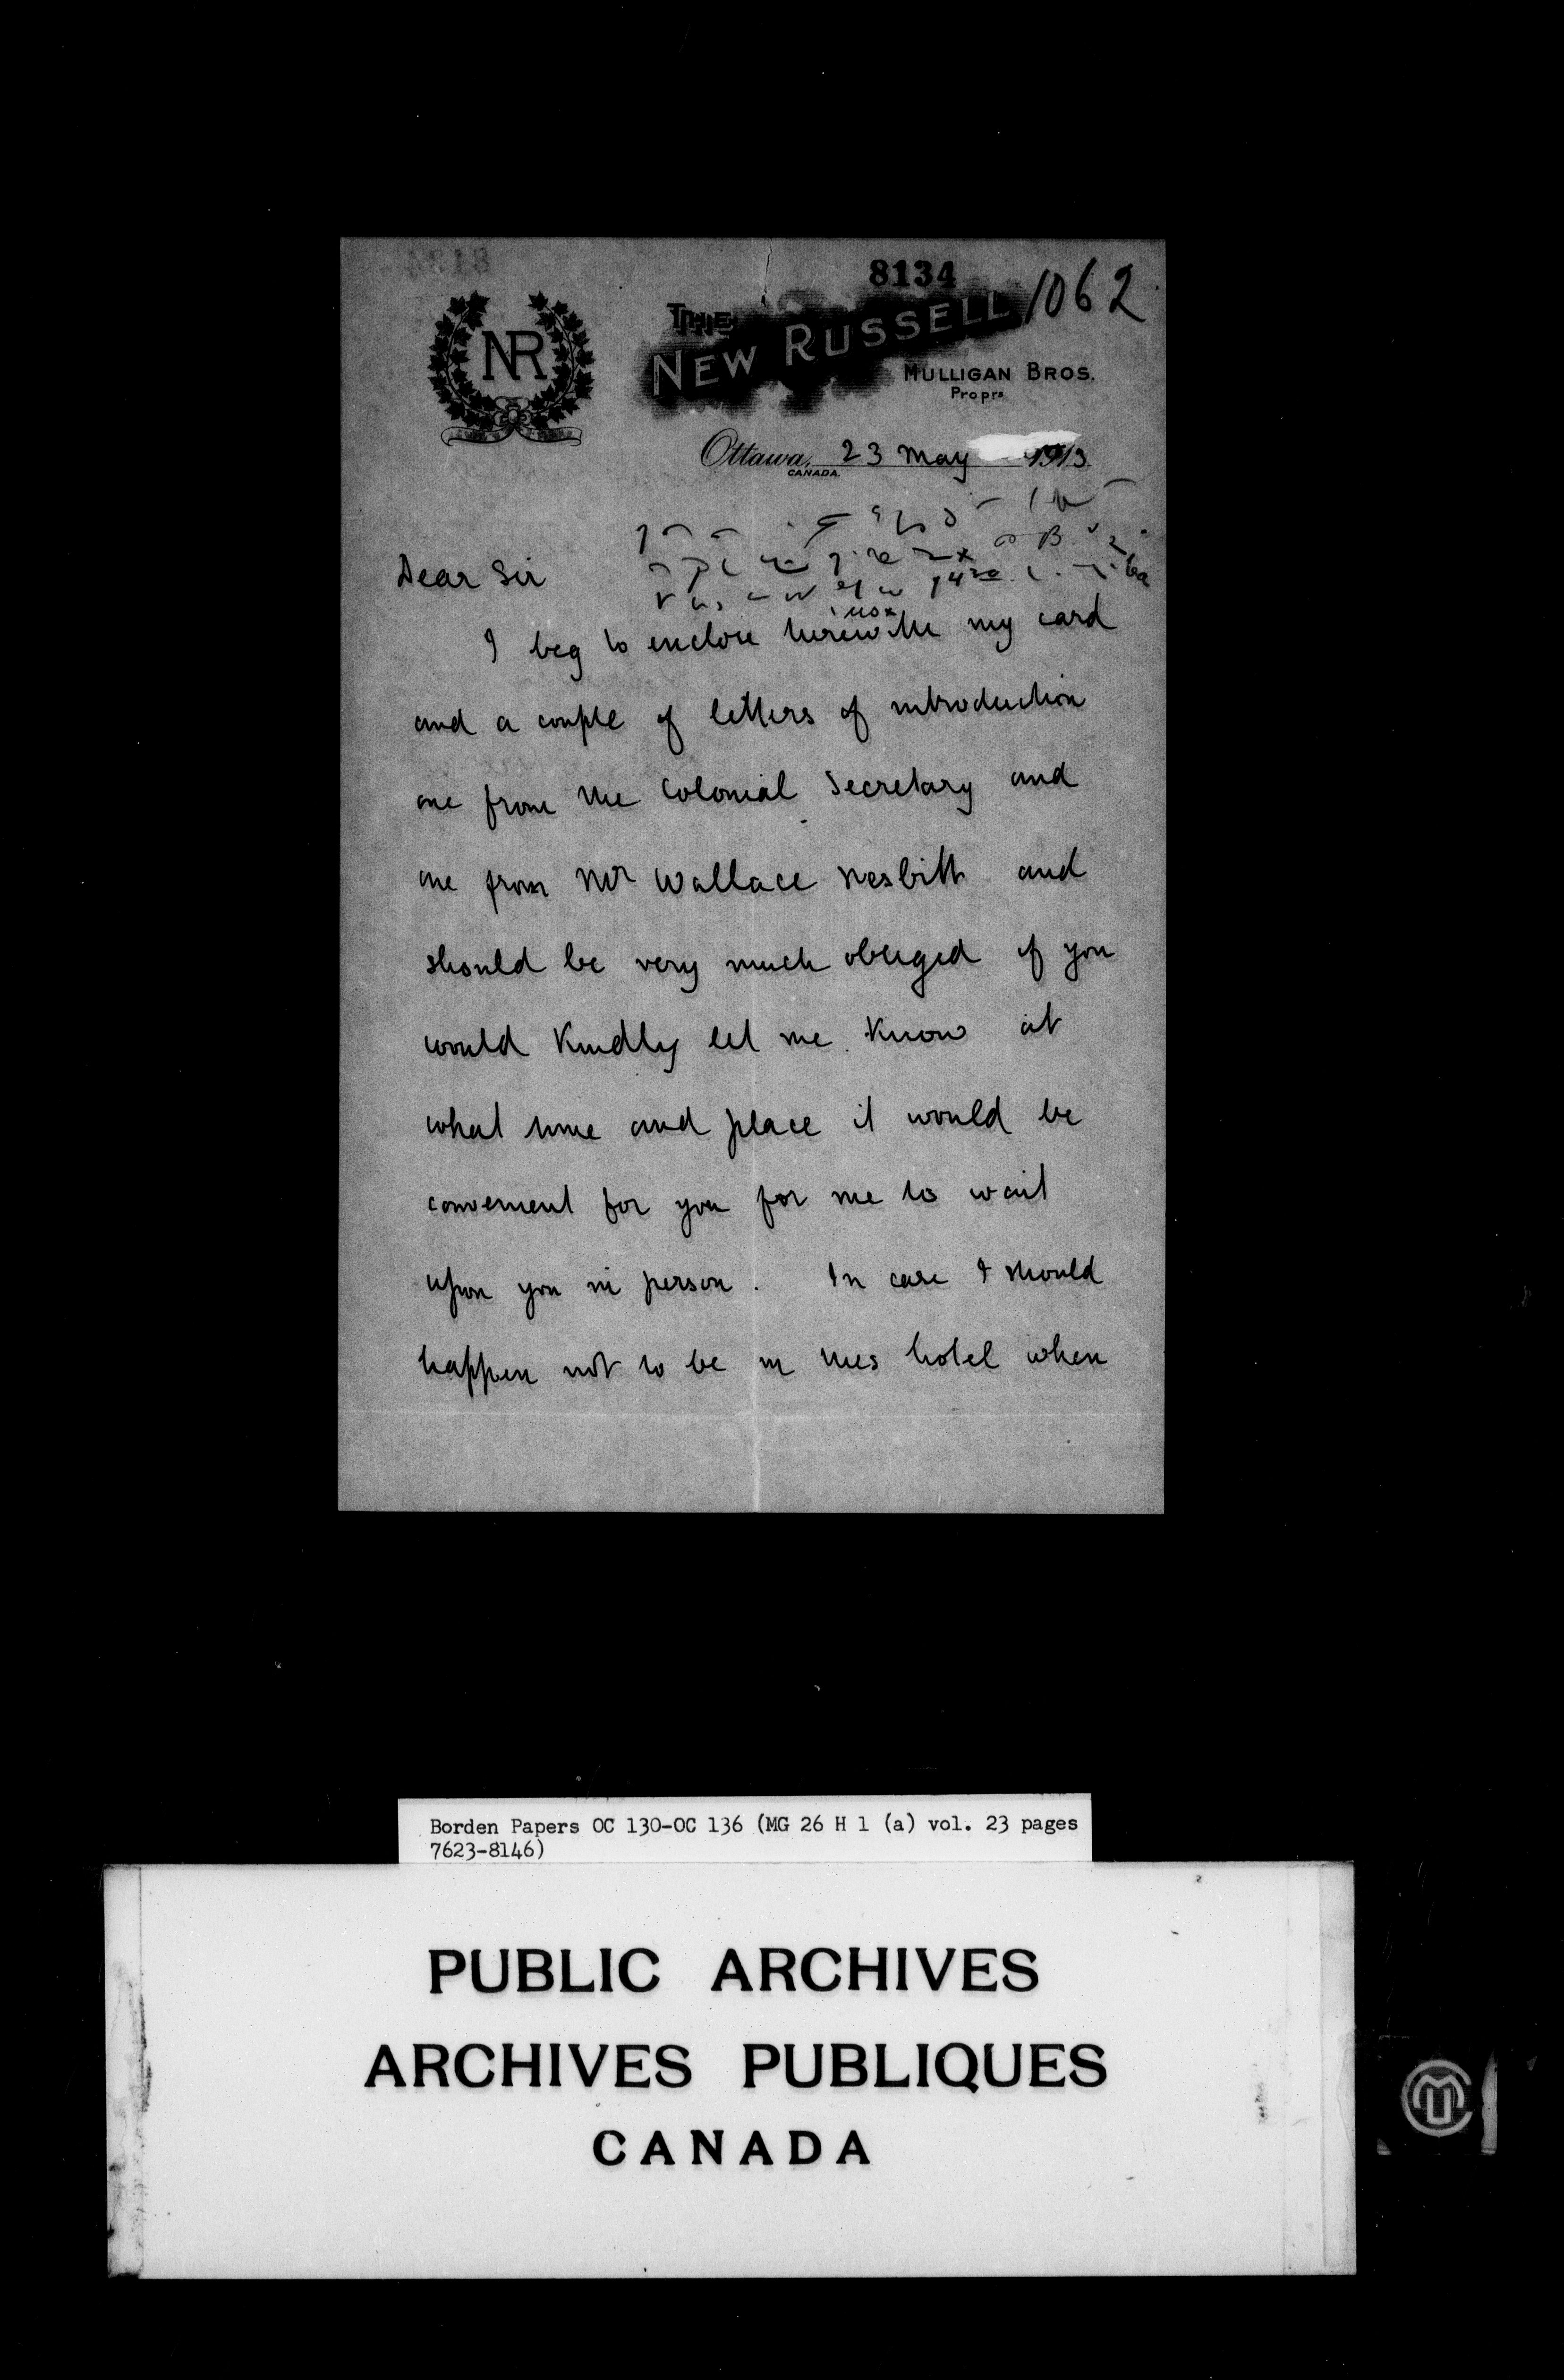 8134
1062
NR
THE
NEW RUSSELL
MULLIGAN BROS.
Proprs
Ottawa, 23 May 1913
CANADA.
Dear Sir
I beg to enclose herewith my card
and a couple of letters of introduction
one from the Colonial Secretary and
one from Mr Wallace Nesbitt and
should be very much obliged if you
would kindly let me know at
what time and place it would be
convenient for you for me to wait
upon you in person. In case I should
happen not to be in this hotel when
Borden Papers OC 130-OC 136 (MG 26 H 1 (a) vol. 23 pages
7623-8146)
PUBLIC ARCHIVES
ARCHIVES PUBLIQUES
CANADA